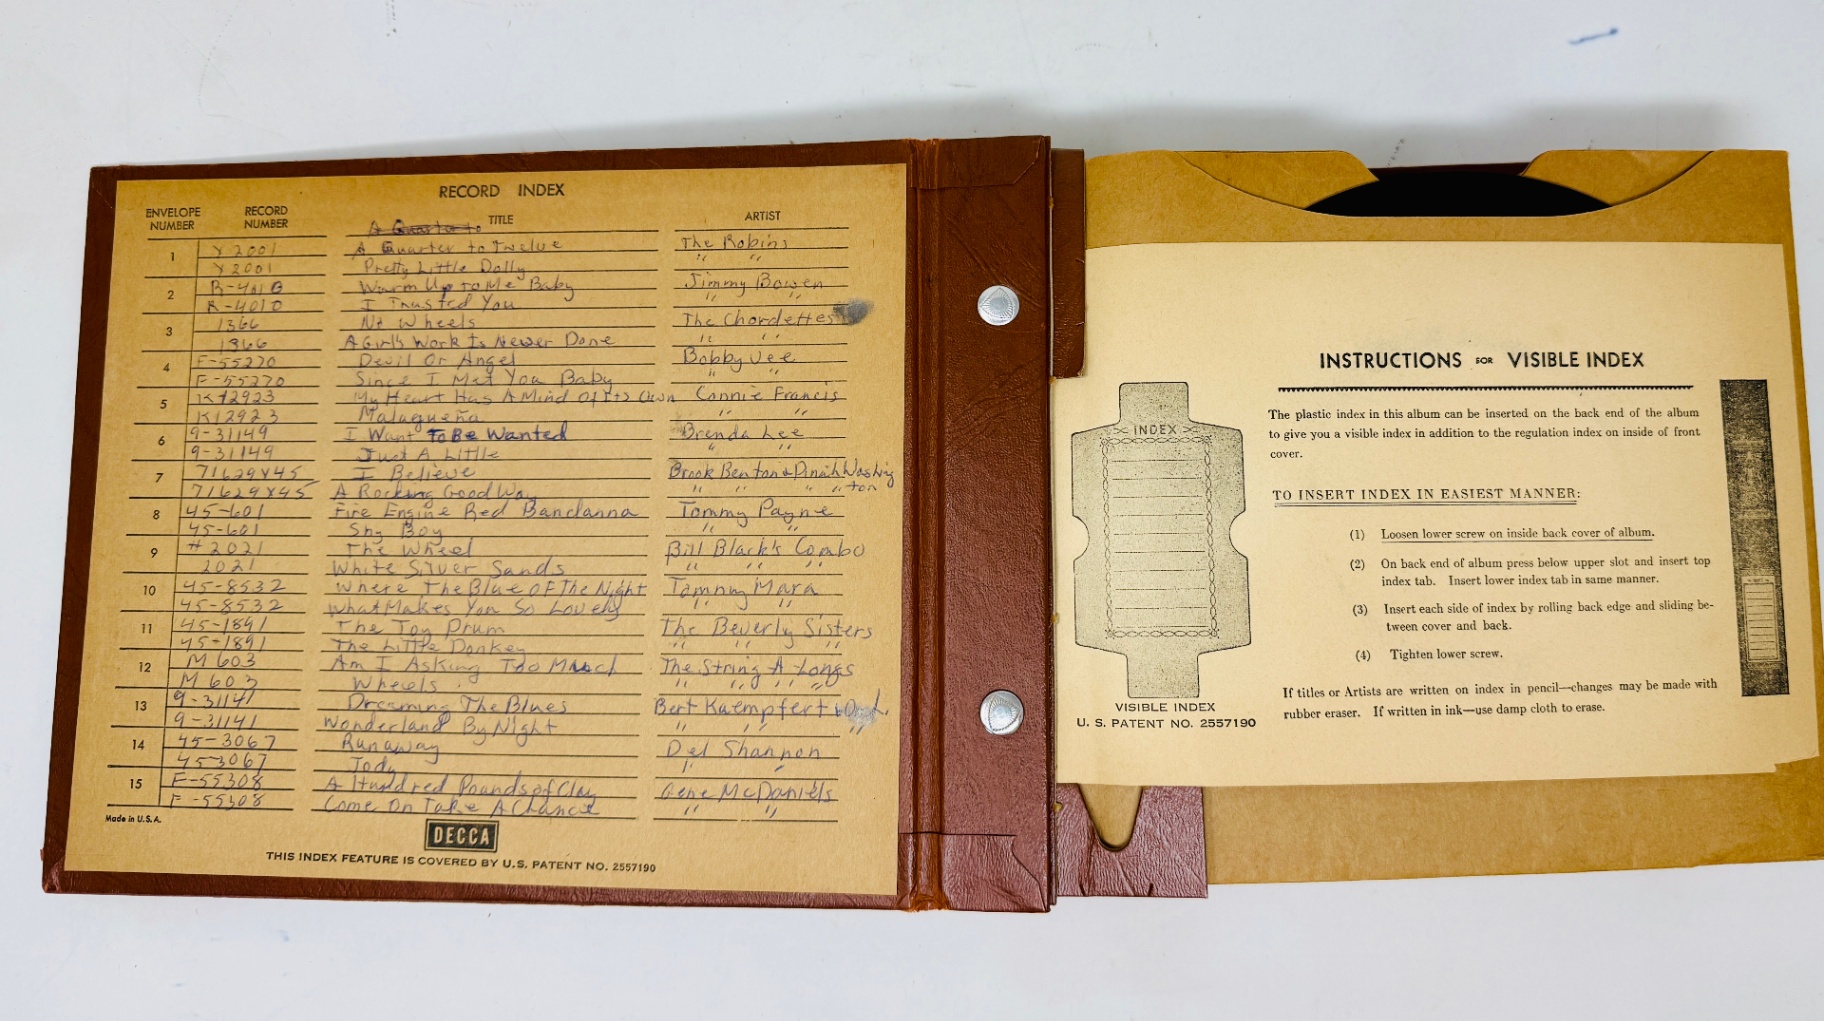 RECORD INDEX
ENVELOPE NUMBER RECORD NUMBER TITLE ARTIST
A Quarter to
1 Y 2001 A Quarter to Twelve The Robins
Y 2001 Pretty Little Dolly " "
2 R-4010 Warm Up To Me Baby Jimmy Bowen
R-4010 I Trusted You " "
3 1366 No Wheels The Chordettes
1366 A Girl's Work Is Never Done " "
4 F-55270 Devil Or Angel Bobby Vee
F-55270 Since I Met You Baby " "
5 K12923 My Heart Has A Mind Of Its Own Connie Francis
K12923 Malagueña " "
6 9-31149 I Want To Be Wanted Brenda Lee
9-31149 Just A Little " "
7 71629X45 I Believe Brook Benton & Dinah Washington
71629X45 A Rocking Good Way " " " "
8 45-601 Fire Engine Red Bandanna Tommy Payne
45-601 Shy Boy " "
9 # 2021 The Wheel Bill Black's Combo
2021 White Silver Sands " " "
10 45-8532 Where The Blue Of The Night Tommy Mara
45-8532 What Makes You So Lovely " "
11 45-1891 The Toy Drum The Beverly Sisters
45-1891 The Little Donkey " " "
12 M 603 Am I Asking Too Much The String A Longs
M 603 Wheels " " " "
13 9-31141 Dreaming The Blues Bert Kaempfert
9-31141 Wonderland By Night " " "
14 45-3067 Runaway Del Shannon
45-3067 Jody " "
15 F-55308 A Hundred Pounds of Clay Gene McDaniels
F-55308 Come On Take A Chance " "
Made in U.S.A.
DECCA
THIS INDEX FEATURE IS COVERED BY U.S. PATENT NO. 2557190
INSTRUCTIONS FOR VISIBLE INDEX
The plastic index in this album can be inserted on the back end of the album
to give you a visible index in addition to the regulation index on inside of front
cover.
TO INSERT INDEX IN EASIEST MANNER:
(1) Loosen lower screw on inside back cover of album.
(2) On back end of album press below upper slot and insert top
index tab. Insert lower index tab in same manner.
(3) Insert each side of index by rolling back edge and sliding be-
tween cover and back.
(4) Tighten lower screw.
If titles or Artists are written on index in pencil—changes may be made with
rubber eraser. If written in ink—use damp cloth to erase.
INDEX
VISIBLE INDEX
U. S. PATENT NO. 2557190